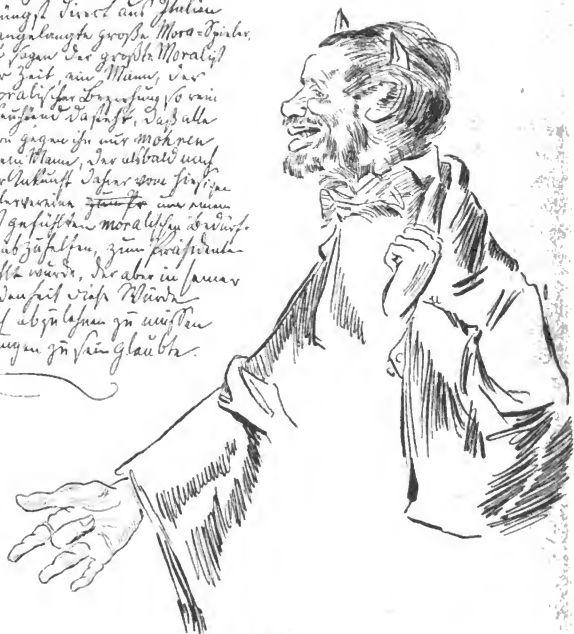 jüngst direct aus Italien
angelangte große Mora-Spieler,
sagen der größte Moralist
Zeit, ein Mann, der
moralischer Beziehung so rein
dasteht, daß alle
gegen ihn nur Mohren
ein Mann, der alsbald nach
Ankunft daher vom hiesigen
einem
gefühlten moralischen Bedürf-
abzuhelfen, zum Präsidenten
wurde, der aber in seiner
diese Würde
abzulehnen zu müssen
zu sein glaubte.